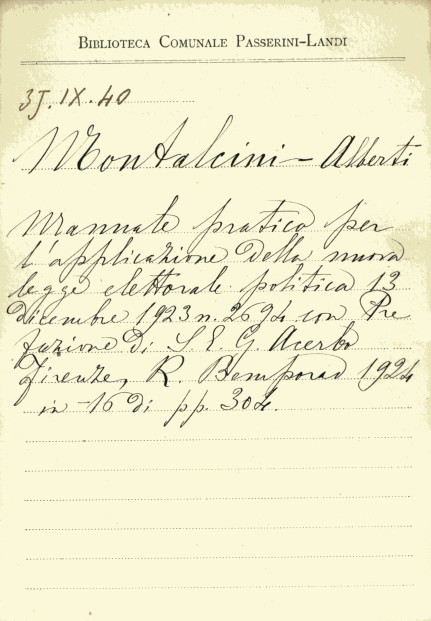 BIBLIOTECA COMUNALE PASSERINI-LANDI
3J.IX.40
Montalcini - Alberti
Manuale pratico per
l'applicazione della nuova
legge elettorale politica 13
Dicembre 1923 n. 2694 con Pre
fazione di S. E. G. Acerbo
Firenze, R. Bemporad 1924
in -16 di pp. 304.